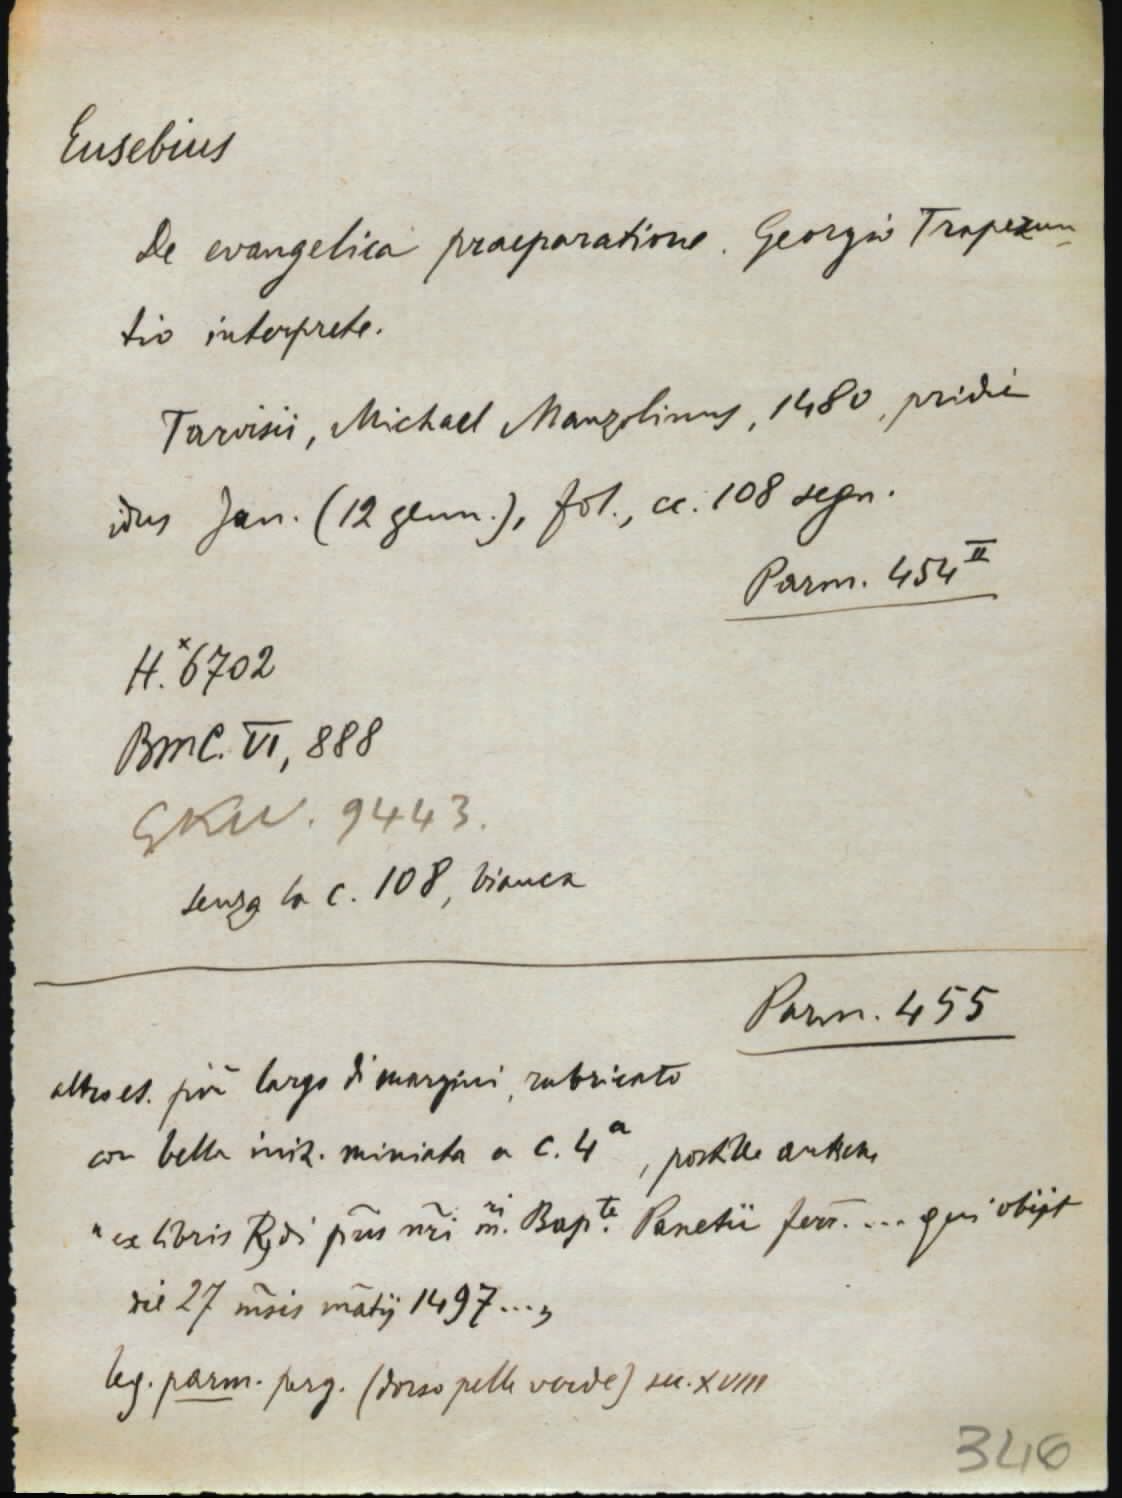 Eusebius
De evangelica praeparatione. Georgio Trapezun-
tio interprete.
Tarvisii, Michael Manzolinus, 1480, pridie
idus Jan. (12 genn.), fol., cc. 108 segn.
Parm. 454 II
H.*6702
BMC. VI, 888
GKW. 9443.
senza la c. 108, bianca
Parm. 455
altro es. più largo di margini, rubricato
con bella iniz. miniata a c. 4a, postille antiche
"ex libris Rdi p̄ris nr̄i m̄ri Bapte. Panetii ferr̄. ... qui obijt
die 27 m̄sis mātij 1497..."
leg. parm. perg. (dorso pelle verde) sec. XVIII
346